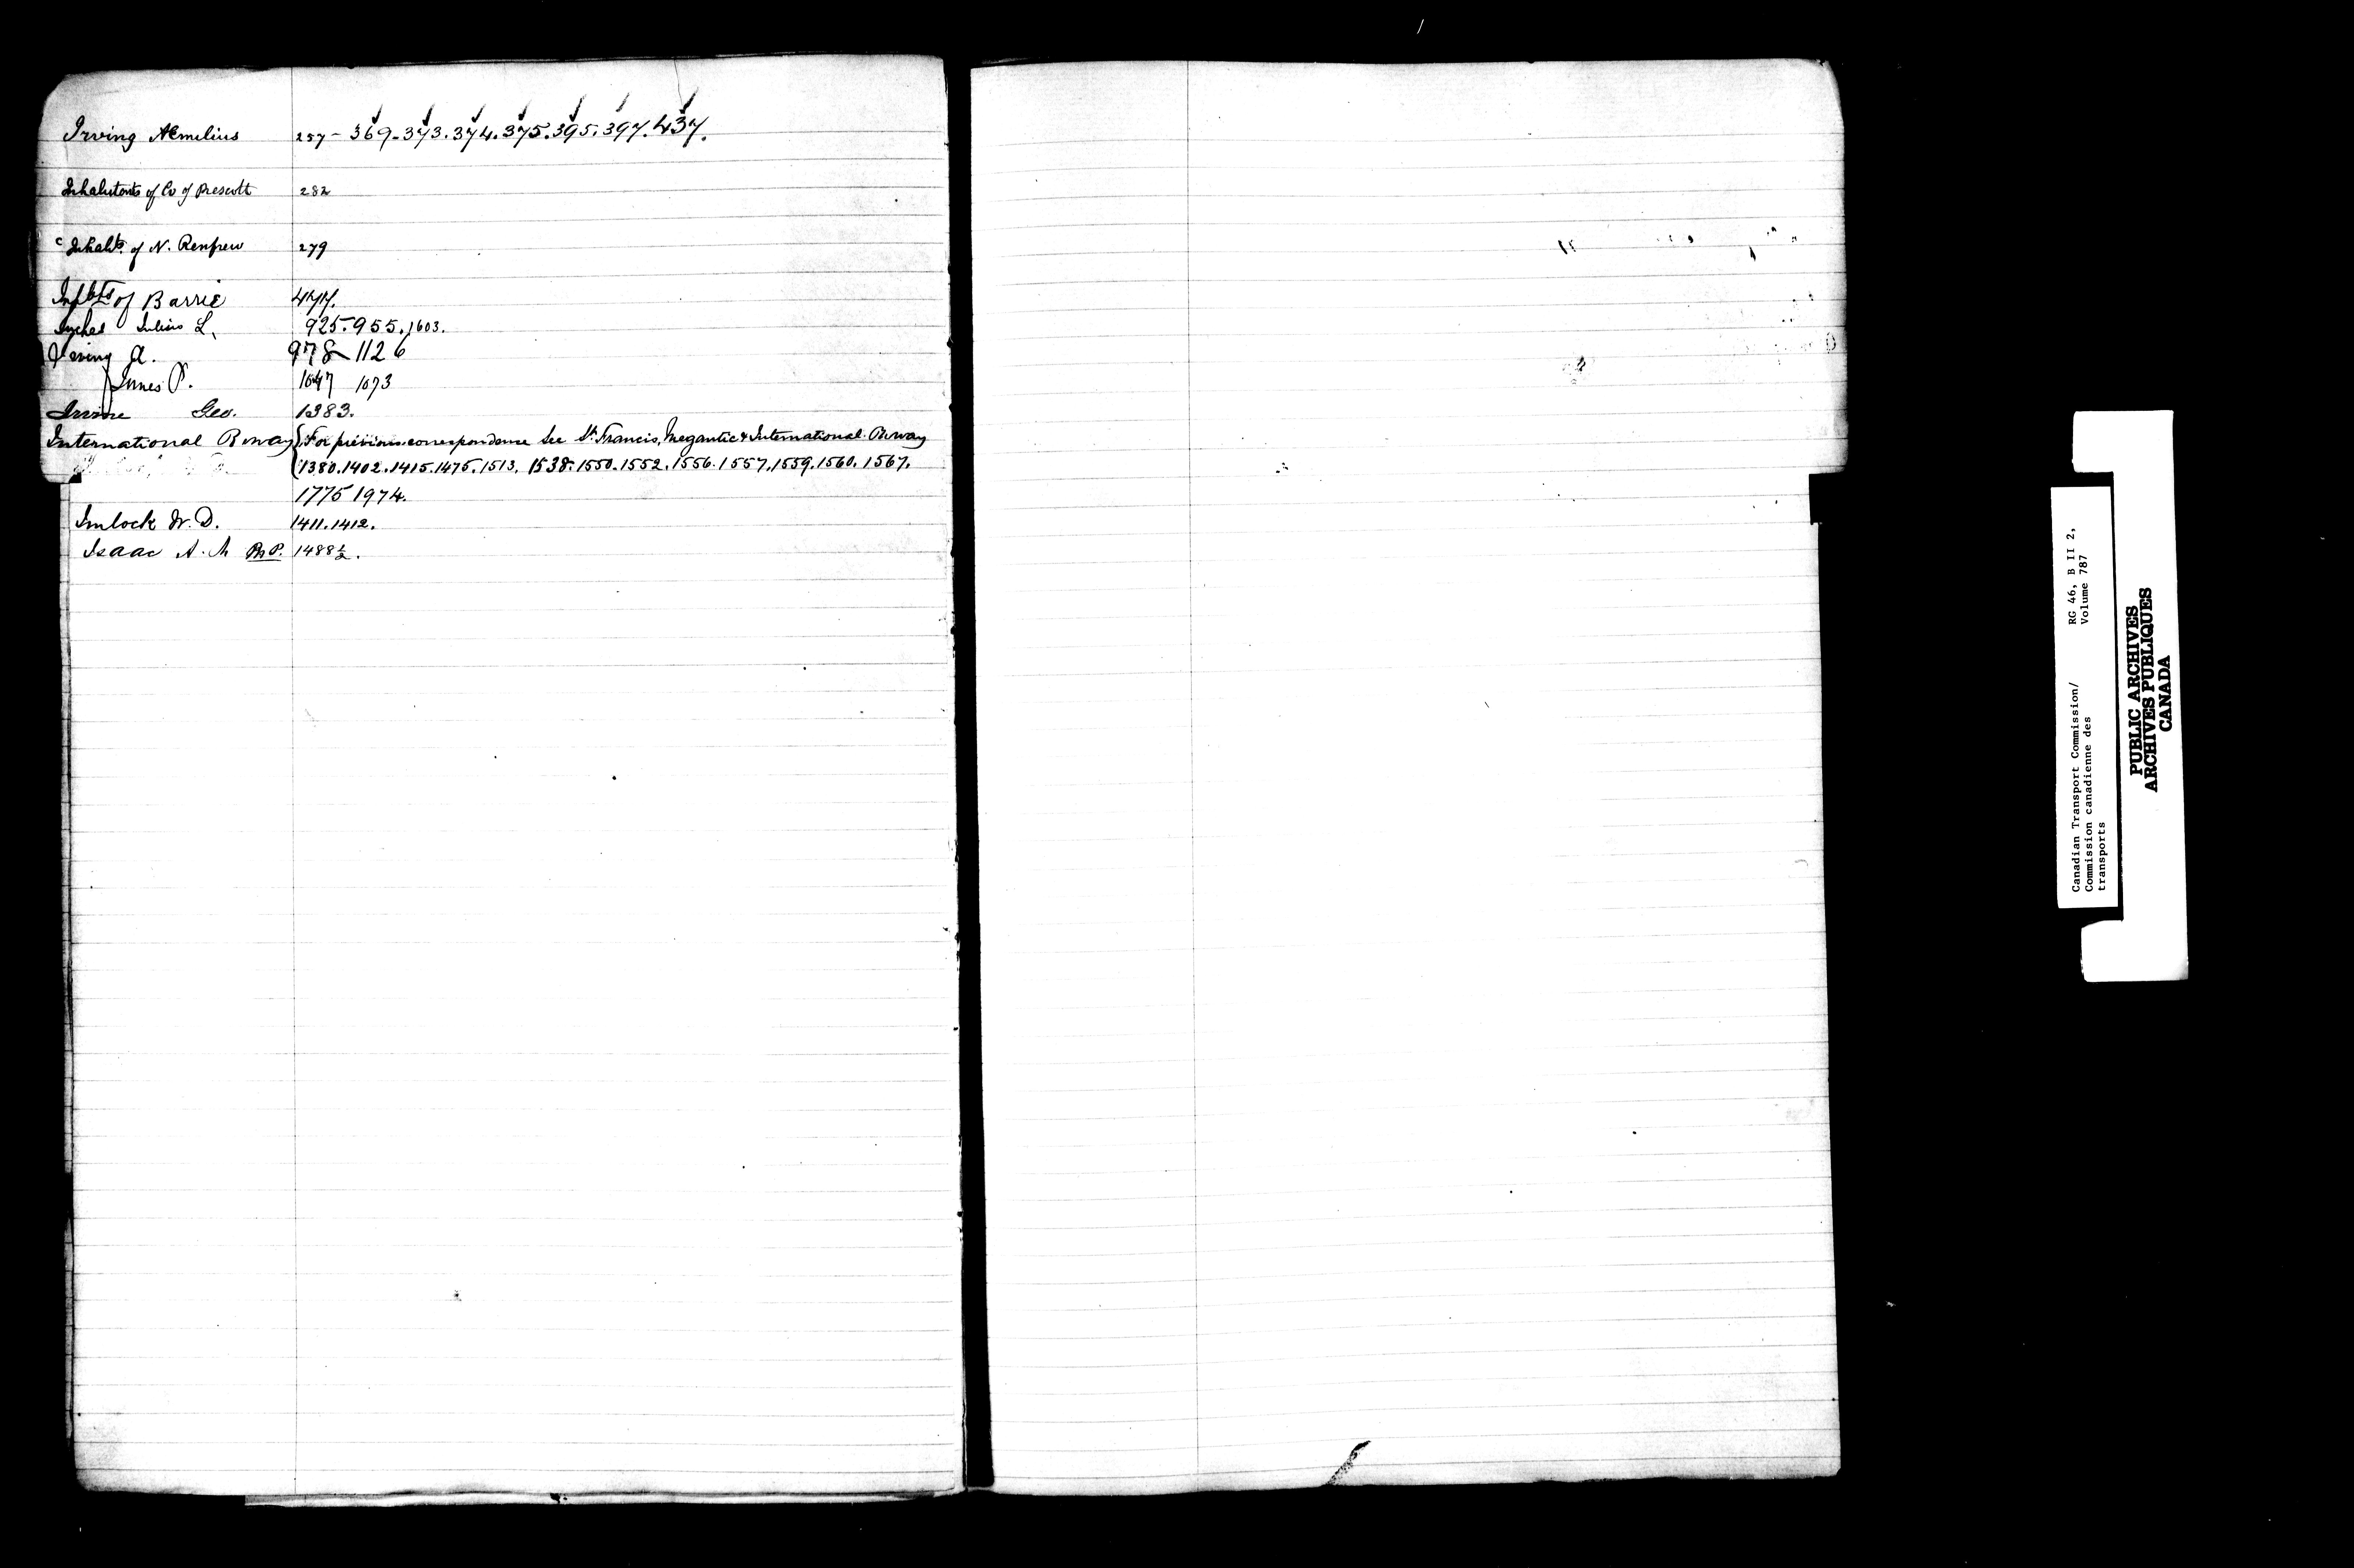 Irving Æmelius 257 - 369-373.374.375.395.397.437.
Inhabitants of Co of Prescott 282
Inhabts. of N. Renfrew 279
Inhbts of Barrie 477.
Inches Julius L. 925.955.1603.
Irving A. 978 1126
Innes P. 1047 1073
Irvine Geo. 1383.
International Rway {For previous correspondence See St. Francis, Megantic & International Rway
1380.1402.1415.1475.1513. 1538.1550.1552.1556.1557.1559.1560.1567.
1775 1974.
Imlock W. D. 1411.1412.
Isaac A. M PMP. 1488½.
Canadian Transport Commission/ RG 46, B II 2,
Commission canadienne des Volume 787
transports
PUBLIC ARCHIVES
ARCHIVES PUBLIQUES
CANADA